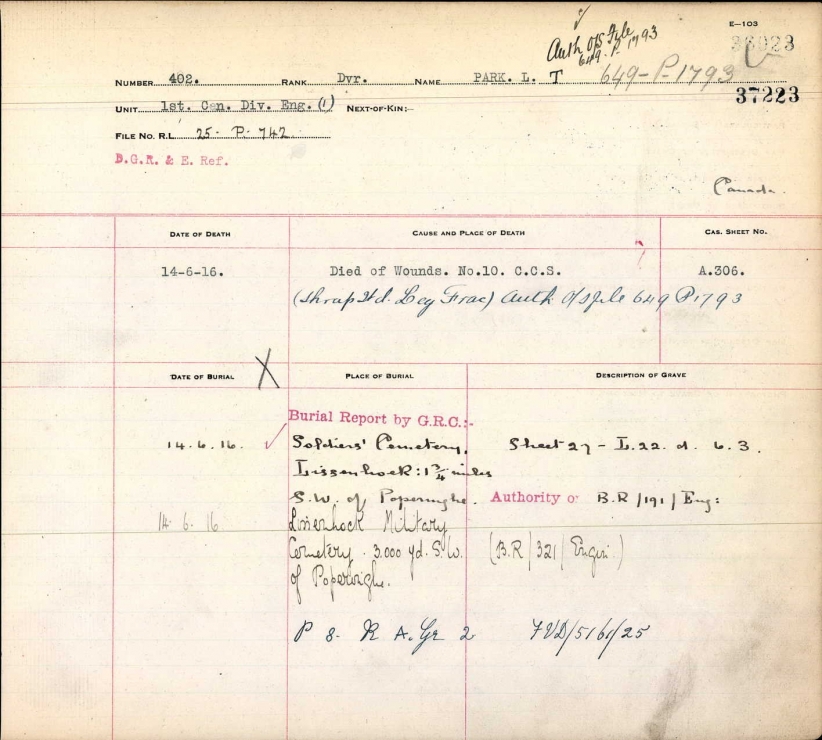 E—103
Auth O/S File
649-P-1793
649-P-1793
37223
NUMBER 402. RANK Dvr. NAME PARK. L. T
UNIT 1st. Can. Div. Eng. (1) NEXT-OF-KIN:—
FILE NO. R.L. 25-P-742
D.G.R. & E. Ref.
Canada.
DATE OF DEATH CAUSE AND PLACE OF DEATH CAS. SHEET NO.
14-6-16. Died of Wounds. No.10. C.C.S. A.306.
(Shrap Wd. Leg Frac) Auth O/S file 649 P1793
DATE OF BURIAL X PLACE OF BURIAL DESCRIPTION OF GRAVE
Burial Report by G.R.C.:-
14.6.16. ✓ Soldiers' Cemetery, Sheet 27 - L.22.d. 6.3.
Lissenhoek: 1¾ miles
S.W. of Poperinghe. Authority o B.R/191/Eng:
14.6.16 Lissenhock Military
Cemetery. 3.000 yd. S.W. (B.R/321/Engin.)
of Poperinghe.
P 8. R A. Gr 2